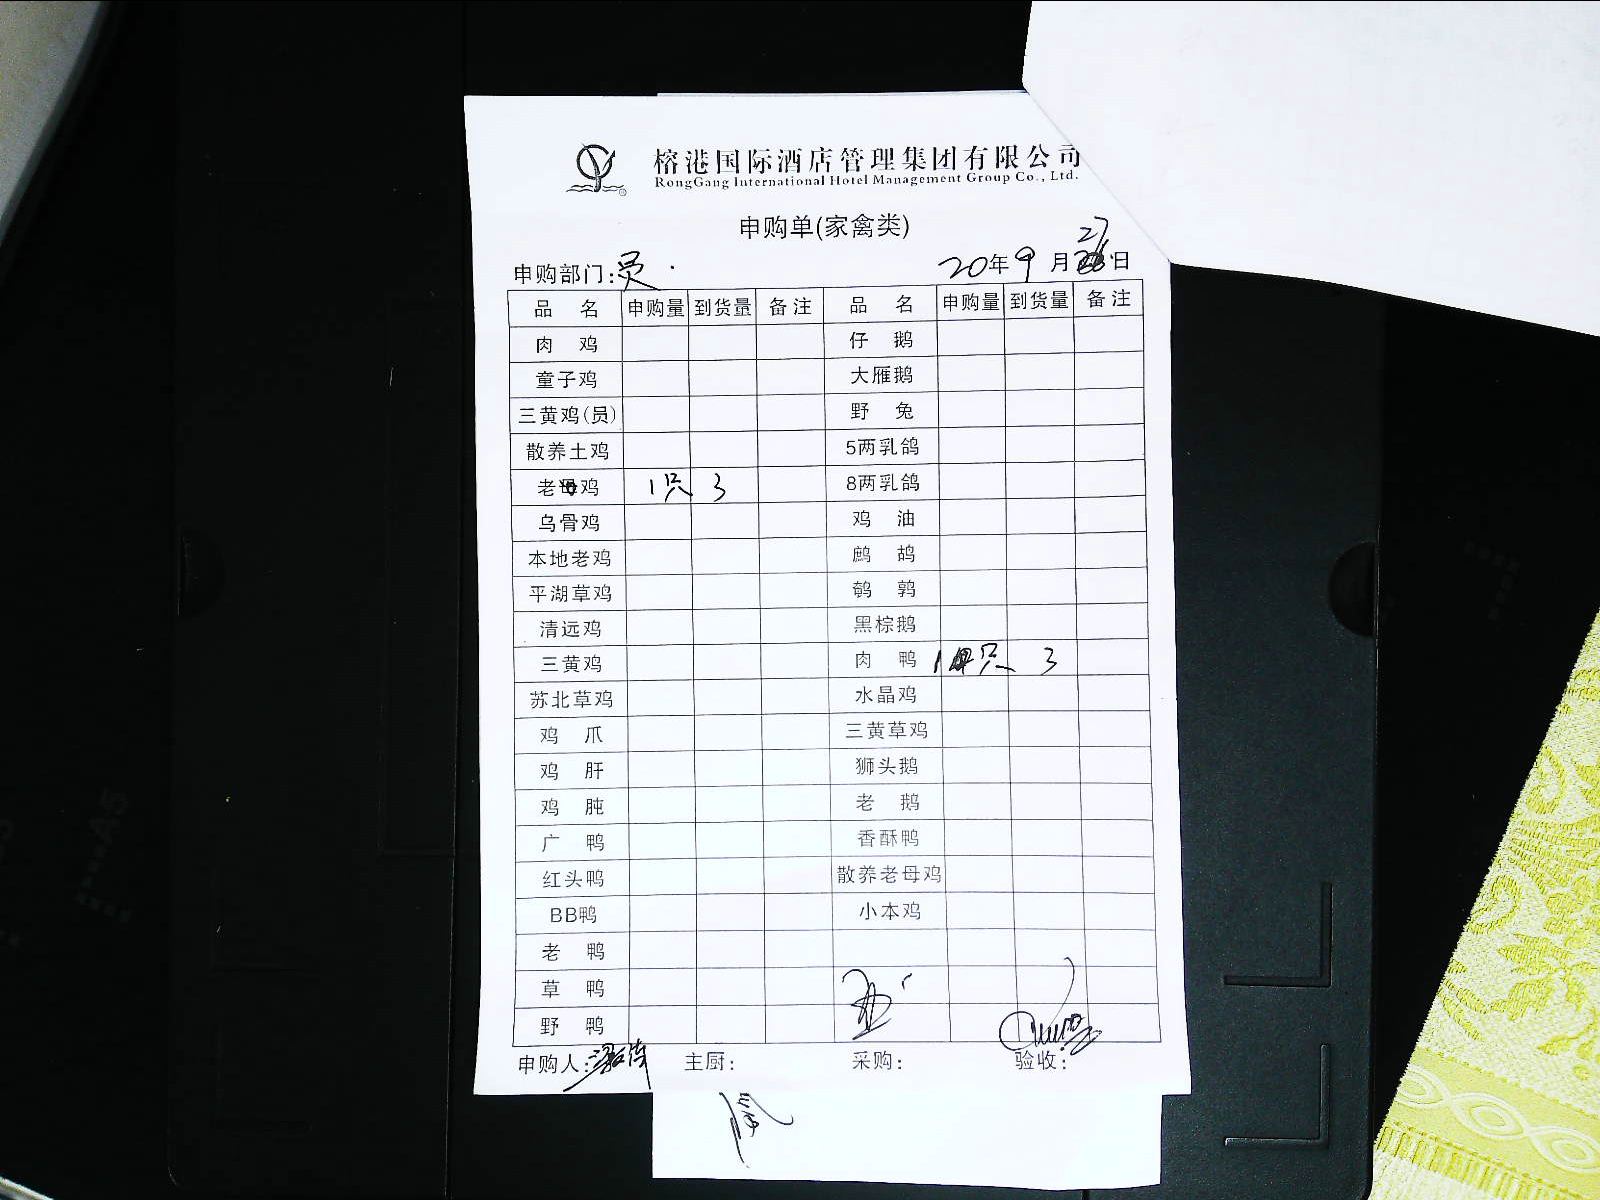 榕港国际酒店管理集团有限公司
RongGang International Hotel Management Group Co., Ltd.
申购单(家禽类)
27
申购部门:员 20年9月日
品名 申购量 到货量 备注 品名 申购量 到货量 备注
肉鸡 仔鹅
童子鸡 大雁鹅
三黄鸡(员) 野兔
散养土鸡 5两乳鸽
老母鸡 1只 3 8两乳鸽
乌骨鸡 鸡油
本地老鸡 鹧鸪
平湖草鸡 鹌鹑
清远鸡 黑棕鹅
三黄鸡 肉鸭 只 3
苏北草鸡 水晶鸡
鸡爪 三黄草鸡
鸡肝 狮头鹅
鸡肫 老鹅
广鸭 香酥鸭
红头鸭 散养老母鸡
BB鸭 小本鸡
老鸭
草鸭
野鸭
申购人: 主厨: 采购: 验收: